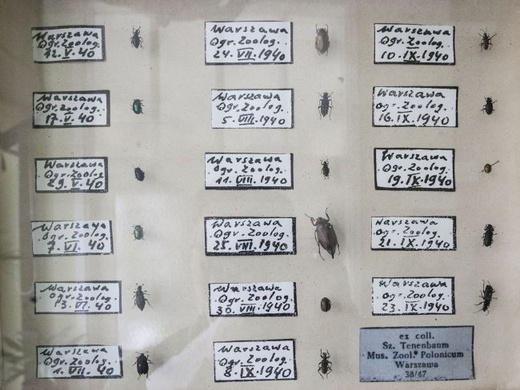 Warszawa
Ogr. Zoolog.
12.V.40
Warszawa
Ogr. Zoolog.
17.V.40
Warszawa
Ogr. Zoolog.
29.V.40
Warszawa
Ogr. Zoolog.
7.VI.40
Warszawa
Ogr. Zoolog.
13.VI.40
Warszawa
Ogr. Zoolog.
1.VII.40
Warszawa
Ogr. Zoolog.
24.VII.1940
Warszawa
Ogr. Zoolog.
5.VIII.1940
Warszawa
Ogr. Zoolog.
11.VIII.1940
Warszawa
Ogr. Zoolog.
25.VIII.1940
Warszawa
Ogr. Zoolog.
30.VIII.1940
Warszawa
Ogr. Zoolog.
8.IX.1940
Warszawa
Ogr. Zoolog.
10.IX.1940
Warszawa
Ogr. Zoolog.
16.IX.1940
Warszawa
Ogr. Zoolog.
19.IX.1940
Warszawa
Ogr. Zoolog.
21.IX.1940
Warszawa
Ogr. Zoolog.
23.IX.1940
ex coll.
Sz. Tenenbaum
Mus. Zool. Polonicum
Warszawa
38/47